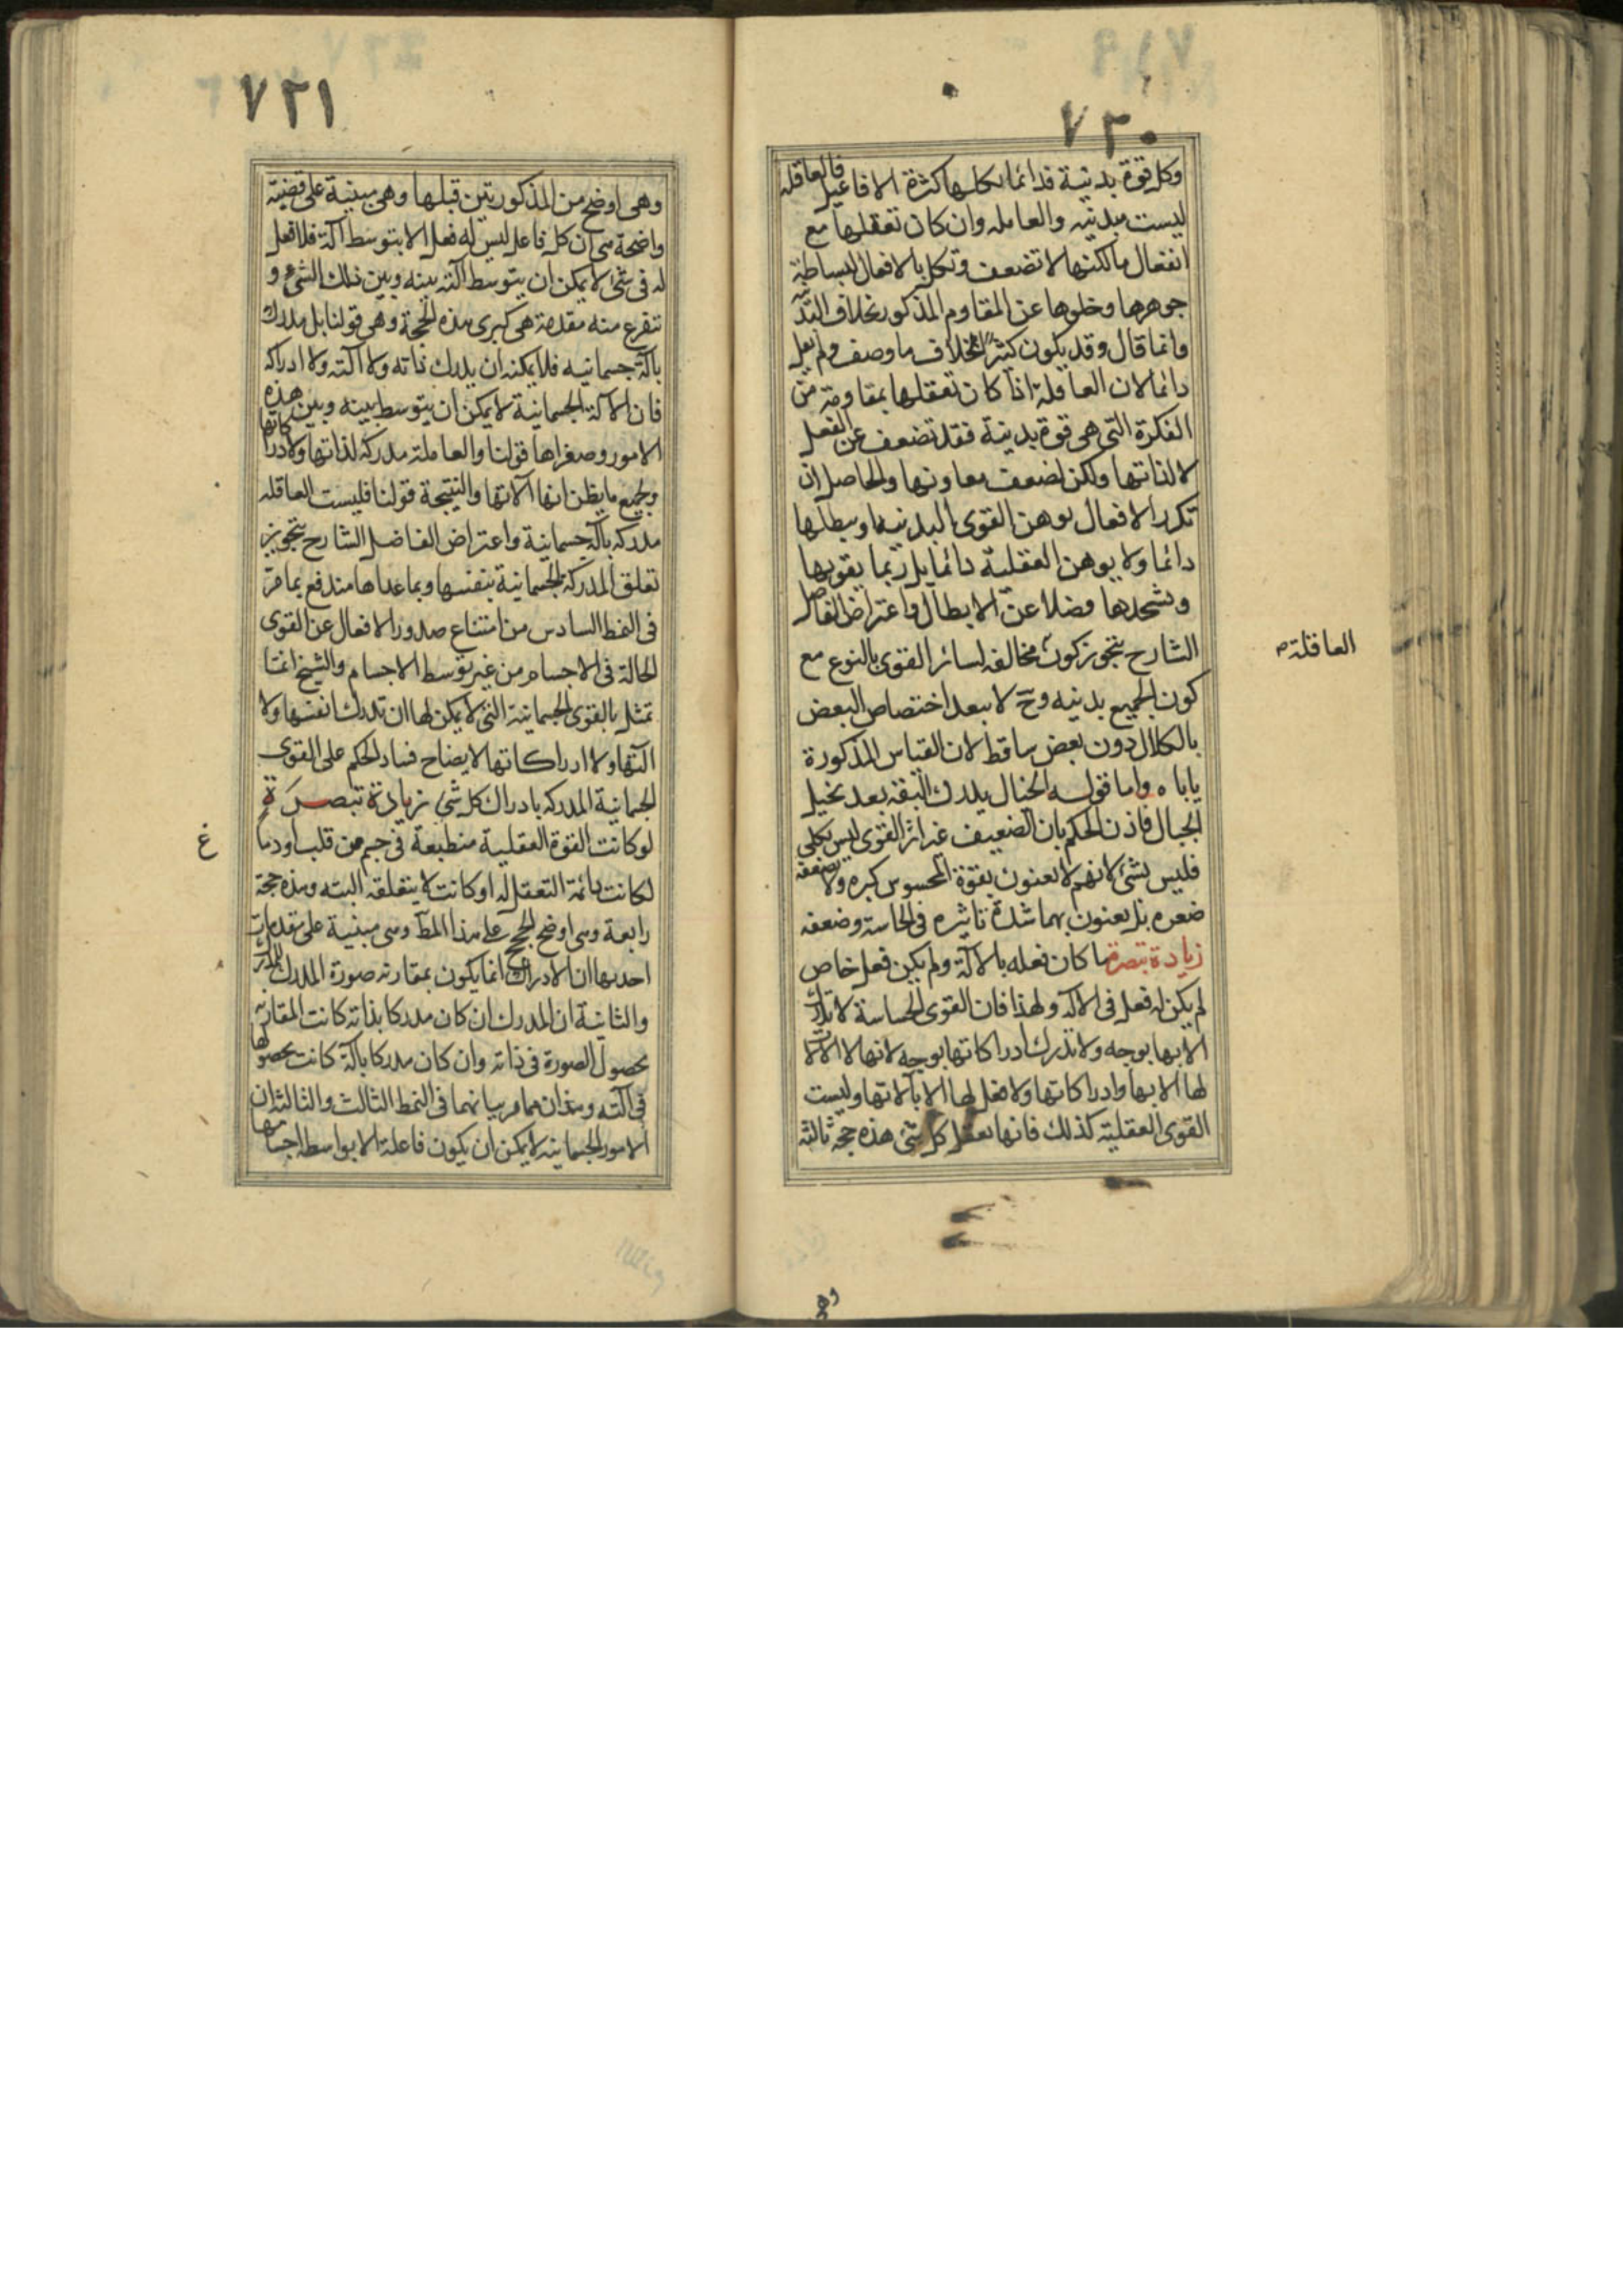 ٧٢٠
وكل قوة بدنية فدائما يكلها كثرة الافاعيل فالعاقله
ليست ببدنيه والعامله وان كان تعقلها مع
انفعال ما لكنها لا تضعف وتكل بالافعال لبساطة
جوهرها وخلوها عن المقاوم المذكور بخلاف البدنيه
وانما قال وقد يكون كثيرا بخلاف ما وصف ولم يقل
دائما لان العاقلة اذا كان تعقلها بمعاونة من
الفكرة التي هي قوة بدنية فقد تضعف عن الفعل
لا لذاتها ولكن لضعف معاونها والحاصل ان
تكرر الافعال يوهن القوى البدنيه ويبطلها
دائما ولا يوهن العقلية دائما بل ربما يقويها
ويشحدها فضلا عن الابطال واعتراض الفاضل
الشارح بتجويز كون مخالفه لسائر القوى بالنوع مع
العاقلة
كون الجميع بدنيه وح لا يبعد اختصاص البعض
بالكلال دون بعض ساقط لان القياس المذكورة
ياباه واما قوله الخيال يدرك البقة بعد تخيل
الجبال فاذن الحكم بان الضعيف غير اثر القوى ليس بكلي
فليس بشئ لانهم لا يعنون بقوة المحسوس كبره ولا بضعفه
صغره بل يعنون بهما شدة تاثيره في الحاسة وضعفه
زيادة تبصرة ما كان فعله بالالة ولم يكن فعل خاص
لم يكن له فعل في الاله ولهذا فان القوى الحساسة لا تدرك
الاتها بوجه ولا تدرك ادراكاتها بوجه لانها لا الات
لها الى الاتها وادراكاتها ولا فعل لها الا بآلاتها وليست
القوى العقلية كذلك فانها تعقل كل شئ هذه حجة ثالثة
وهى
٧٢١
وهى اوضح من المذكورتين قبلها وهى مبنية على قضية
واضحة هى ان كل فاعل ليس له فعل الا بتوسط آلة فلا فعل
له في شئ لا يمكن ان يتوسط آلته بينه وبين ذلك الشئ و
تتفرع منه مقدمة هى كبرى هذه الحجة وهى قولنا بل مدرك
بآلة جسمانيه فلا يمكنه ان يدرك ذاته ولا آلته ولا ادراكه
فان الآلة الجسمانية لا يمكن ان يتوسط بينه وبين هذه
الامور وصغراها قولنا والعاملة مدركة لذاتها ولادراكاتها
ولجميع ما يظن انها آلاتها والنتيجة قولنا فليست العاقله
مدركه بآلة جسمانية واعتراض الفاضل الشارح بتجويز
تعلق المدركة الجسمانية بنفسها وبما عداها مندفع بما مر
في النمط السادس من امتناع صدور الافعال عن القوى
الحالة في الاجسام من غير توسط الاجسام والشيخ انما
تمثل بالقوى الجسمانية التي لا يمكن لها ان تدرك انفسها ولا
آلتها ولا ادراكاتها لايضاح فساد الحكم على القوى
الجسمانية المدركه بادراك كل شئ زيادة تبصرة
لو كانت القوة العقلية منطبعة في جسم من قلب او دماغ
لكانت دائمة التعقل له او كانت لا يتعلقه البته وهذه حجة
رابعة وهى اوضح الحجج على هذا المط وهى مبنية على مقدمات
احديها ان الادراك انما يكون بمقارنه صورة المدرك للمدرك
والثانية ان المدرك ان كان مدركا بذاته كانت المقارنة
بحصول الصورة في ذاته وان كان مدركا بآلة كانت بحصولها
في آلته وهذان مما مر بيانهما في النمط الثالث والثالثة ان
الامور الجسمانيه لا يمكن ان يكون فاعلة الا بواسطه اجسامها